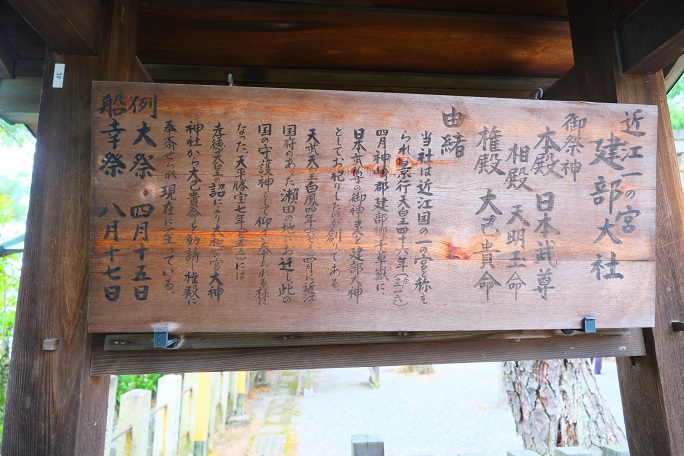 近江一の宮
建部大社
御祭神
本殿 日本武尊
相殿 天明玉命
権殿 大己貴命
由緒
当社は近江国の一の宮と称え
られ景行天皇四十六年(三一六)
四月神崎郡建部郷千草嶽に
日本武尊の御神霊を建部大神
としてお祀りしたのが創りである。
天武天皇白鳳四年(六七五)四月近江
国府のあった瀬田の地にお迁し此の
国の守護神として仰ぎ奉られる様に
なった。天平勝宝七年(七五五)には
孝徳天皇の詔により大和一の宮大神
神社から大己貴命を勧請し権殿に
奉斎せられ現在に至っている。
例大祭 四月十五日
船幸祭 八月十七日